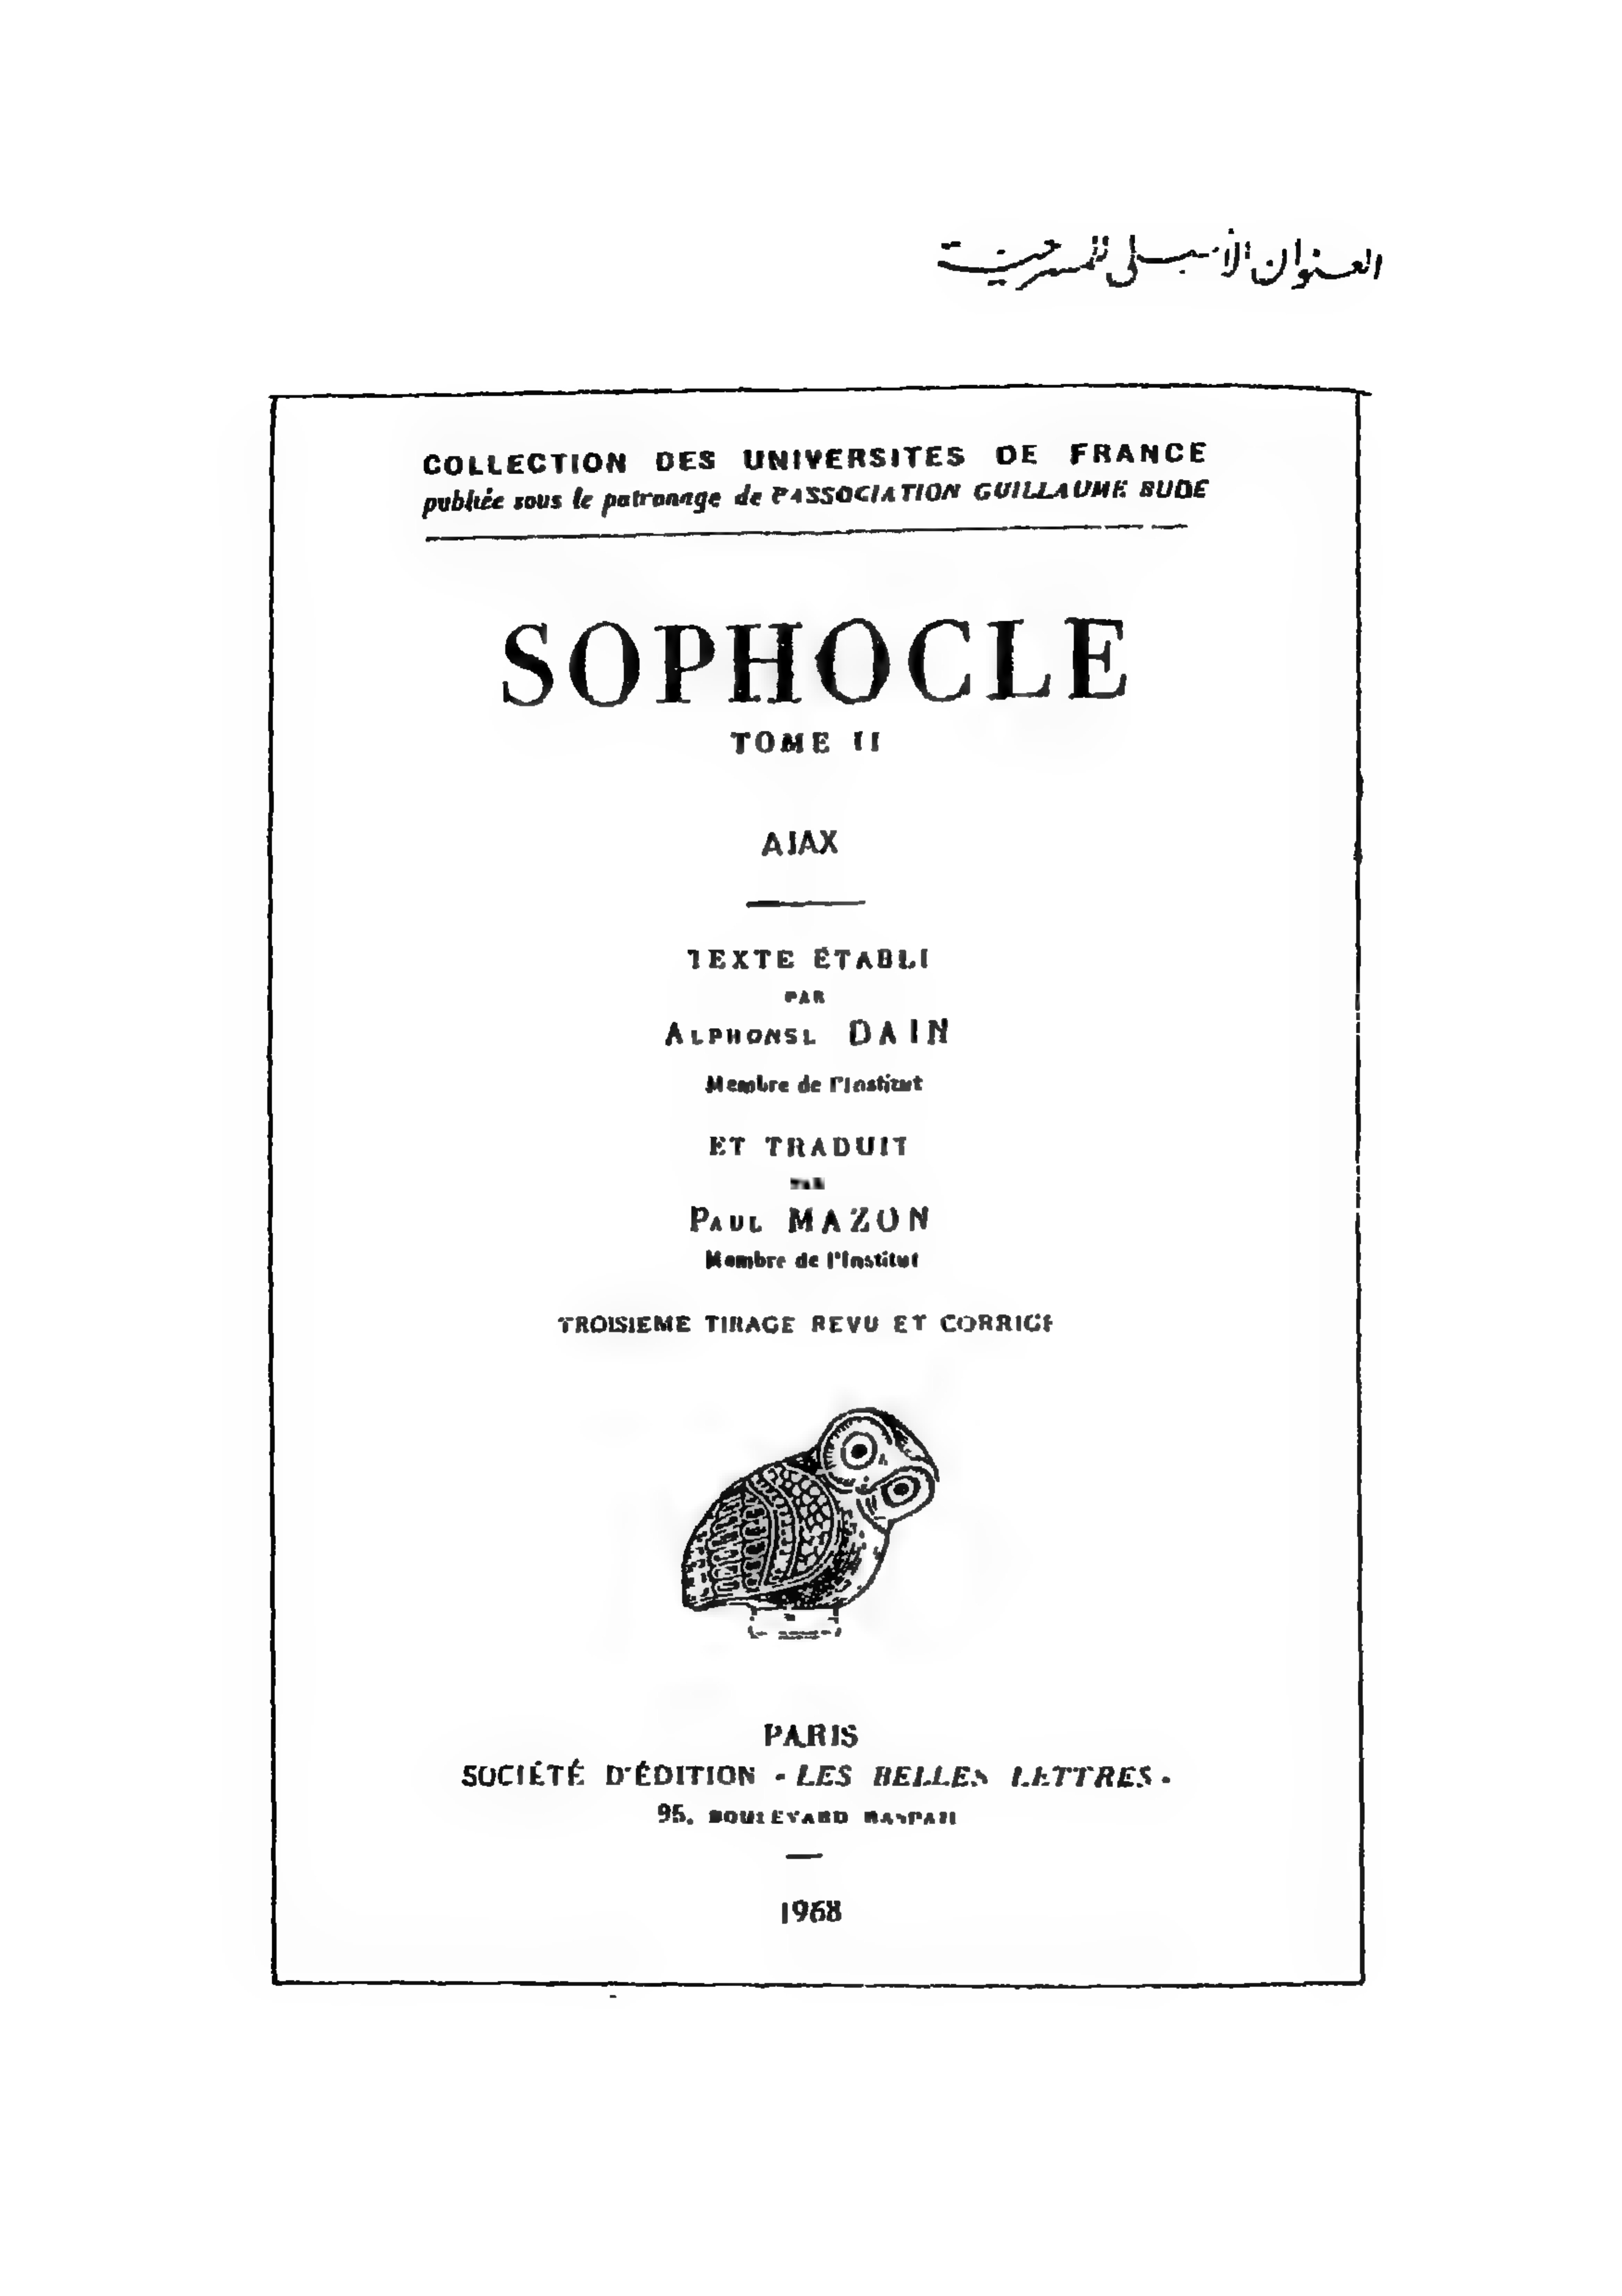 العنوان الأصلى للمسرحية
COLLECTION DES UNIVERSITES DE FRANCE
publiée sous le patronage de l'ASSOCIATION GUILLAUME BUDE
SOPHOCLE
TOME II
AJAX
TEXTE ÉTABLI
PAR
ALPHONSE DAIN
Membre de l'Institut
ET TRADUIT
PAR
PAUL MAZON
Membre de l'Institut
TROISIEME TIRAGE REVU ET CORRIGE
PARIS
SOCIÉTÉ D'ÉDITION « LES BELLES LETTRES »
95, BOULEVARD RASPAIL
1968